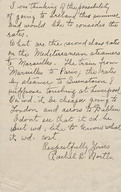 I was thinking of the possibility
of going to Ireland this summer
and would like to consider the
rates.
What are the second class rates
on the Mediterranean steamer
to Marseilles. The train from
Marseilles to Paris, the
steamer to Queenstown, I
suppose touching at Liverpool.
Would be cheaper to
go to
I dont see that it could be
but would like to know what
it would cost
Respectfully Yours
Rachel